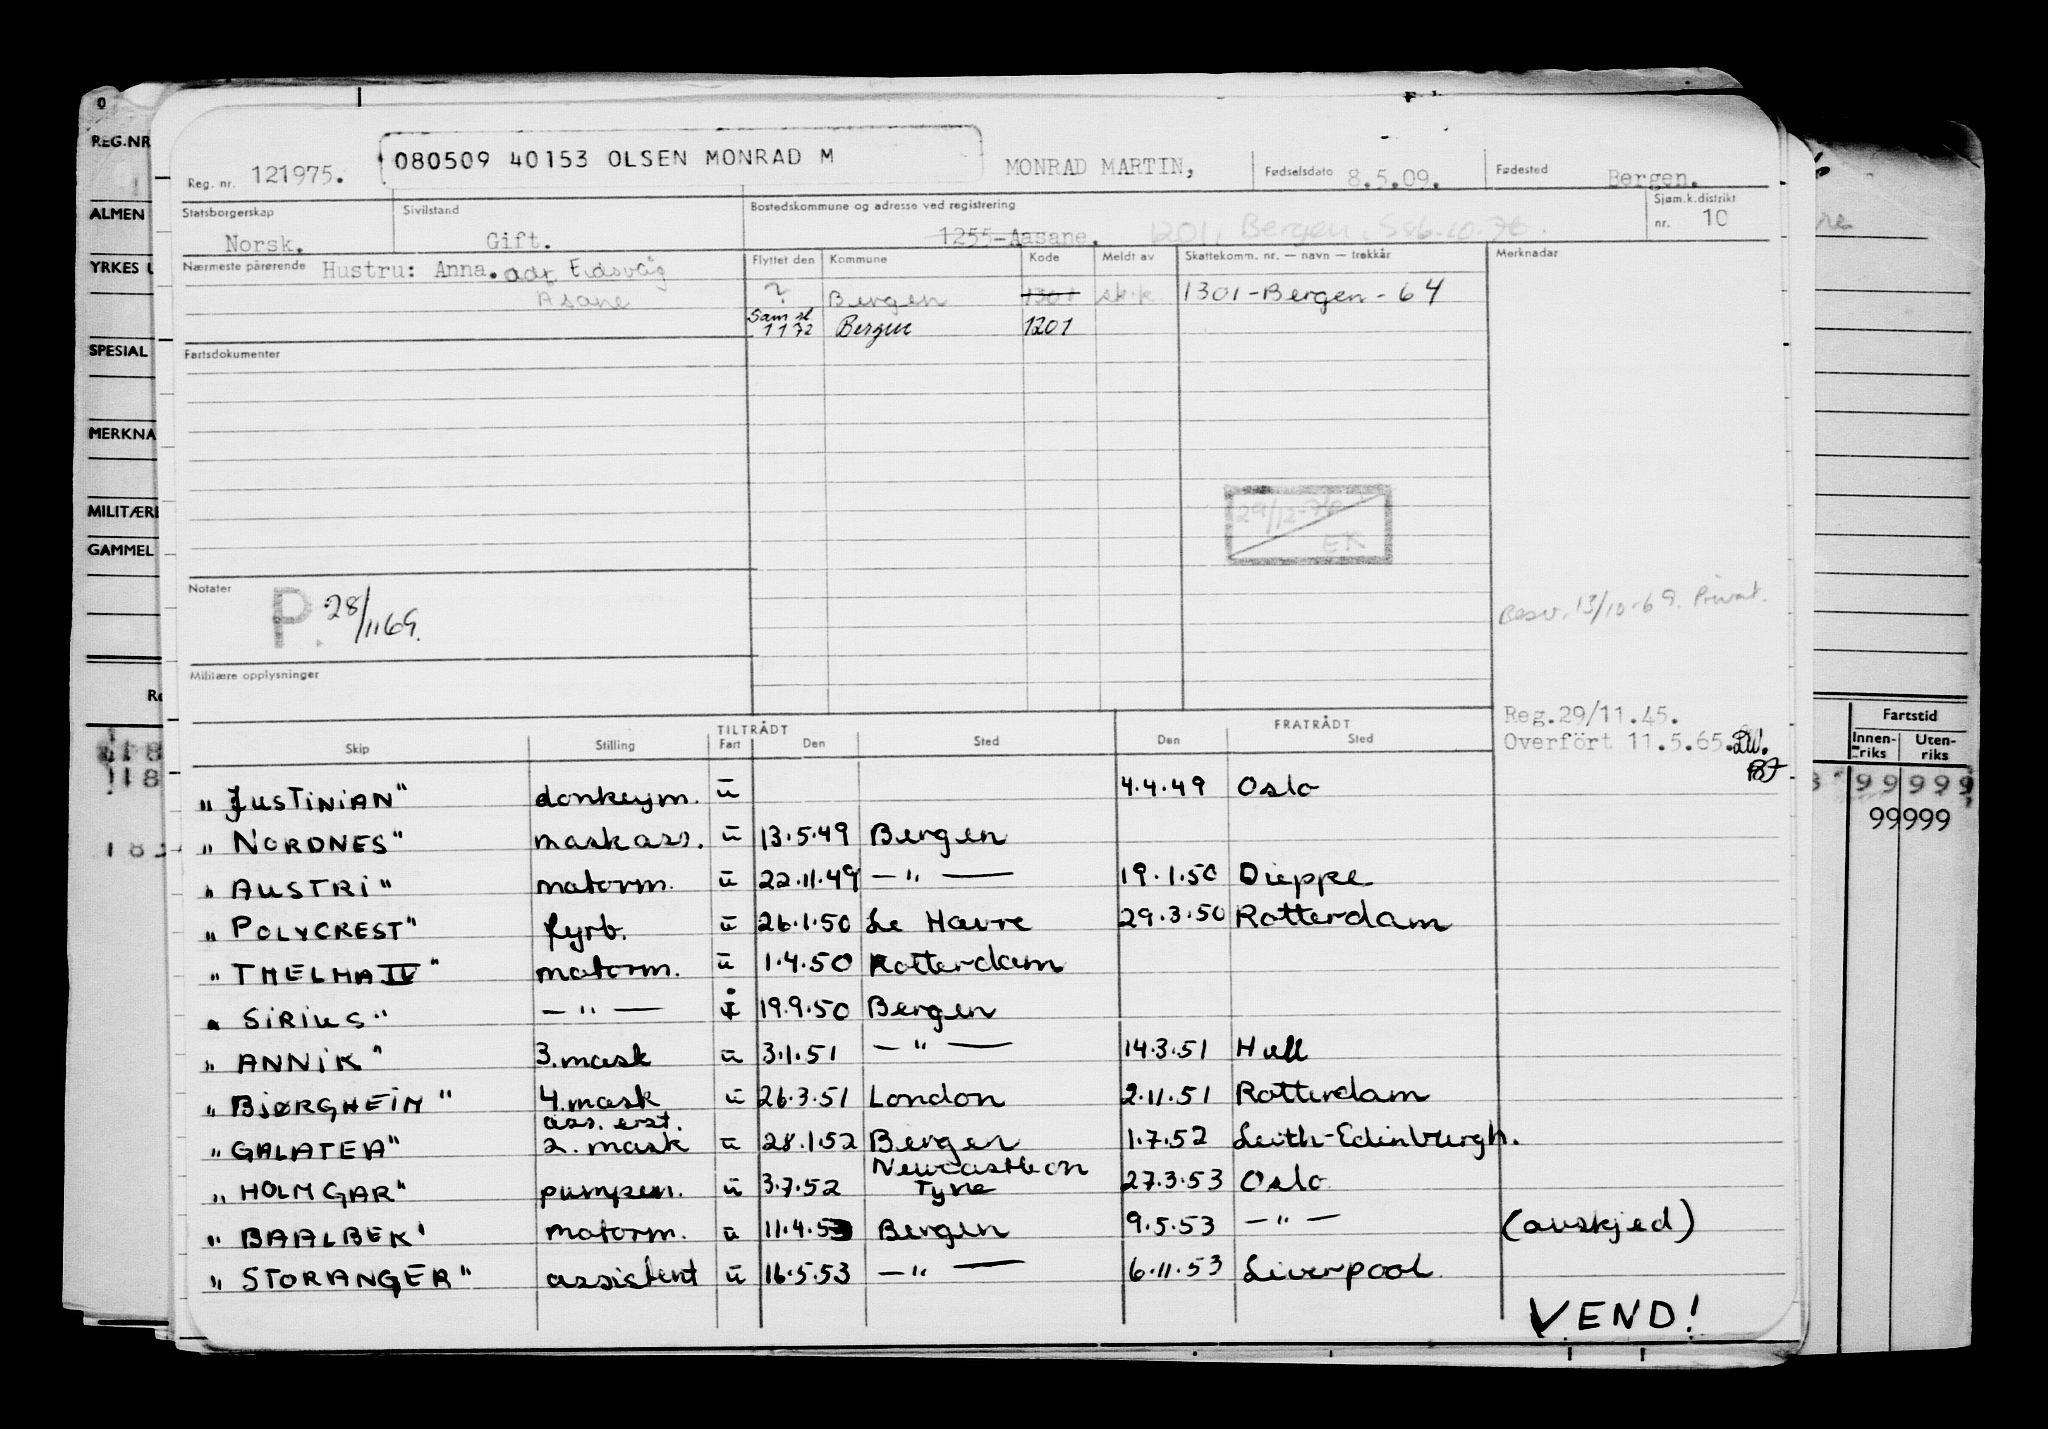 REG.NR
ALMEN
YRKES
SPESIAL
MERKNA
MILITÆRE
GAMMEL
Reg. nr. 121975. 080509 40153 OLSEN MONRAD M MONRAD MARTIN, Fødselsdato 8.5.09. Fødested Bergen.
Statsborgerskap Norsk. Sivilstand Gift. Bostedskommune og adresse ved registrering 1255-Aasane. 1201, Bergen, Ss 6.10.76. Sjøm.k.distrikt nr. 10
Nærmeste pårørende Hustru: Anna. adr Eidsvåg
Asane
Flyttet den Kommune Kode Meldt av Skattekomm. nr. — navn — trekkår Merknader
? Bergen 1301 sk.k. 1301-Bergen-64
Sam.sl 1 1 72 Bergen 1201
Fartsdokumenter
29/12-76
EK
Notater
P. 28/11 69.
Besv. 13/10-69. Privat.
Militære opplysninger
Reg.29/11.45.
Overført 11.5.65.
TILTRÅDT FRATRÅDT
Skip Stilling Fart Den Sted Den Sted
Fartstid
Innen-riks Uten-riks
99999
99999
"JUSTINIAN" donkeym. u 4.4.49 Oslo
"NORDNES" mask ass. u 13.5.49 Bergen
"AUSTRI" matorm. u 22.11.49 — " — 19.1.50 Dieppe
"POLYCREST" fyrb. u 26.1.50 Le Havre 29.3.50 Rotterdam
"THELMA IV" motorm. u 1.4.50 Rotterdam
"SIRIUS" — " — i 19.9.50 Bergen
"ANNIK" 3.mask u 3.1.51 — " — 14.3.51 Hull
"BJØRGHEIM" 4.mask u 26.3.51 London 2.11.51 Rotterdam
"GALATEA" ass. erst. 2. mask u 28.1.52 Bergen 1.7.52 Leith-Edinburgh.
"HOLMGAR" pumpem. u 3.7.52 Newcastle on Tyne 27.3.53 Oslo
"BAALBEK" motorm. u 11.4.53 Bergen 9.5.53 — " — (avskjed)
"STORANGER" assistent u 16.5.53 — " — 6.11.53 Liverpool
VEND!